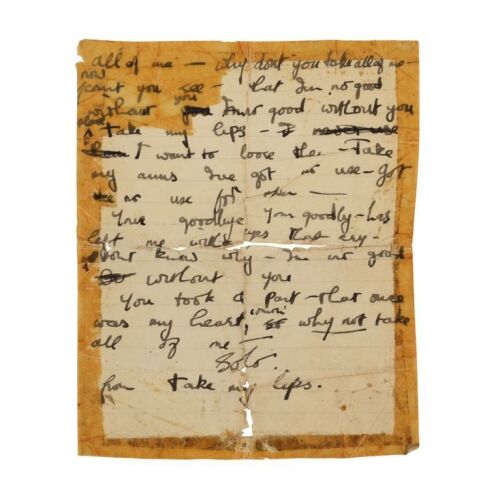 all of me — why don't you take all of me -
now
can't you see - that I'm no good
without you I'm no good without you
please
Take my lips - I never use
them I want to loose them - Take
my arms I've got no use - got
no use for them —
Your goodbye Your goodby - has
left me with eyes that cry -
without know why - I'm no good
without you
You took a part - that once
was my heart, so why not take
all of me
Solo.
from take my lips.